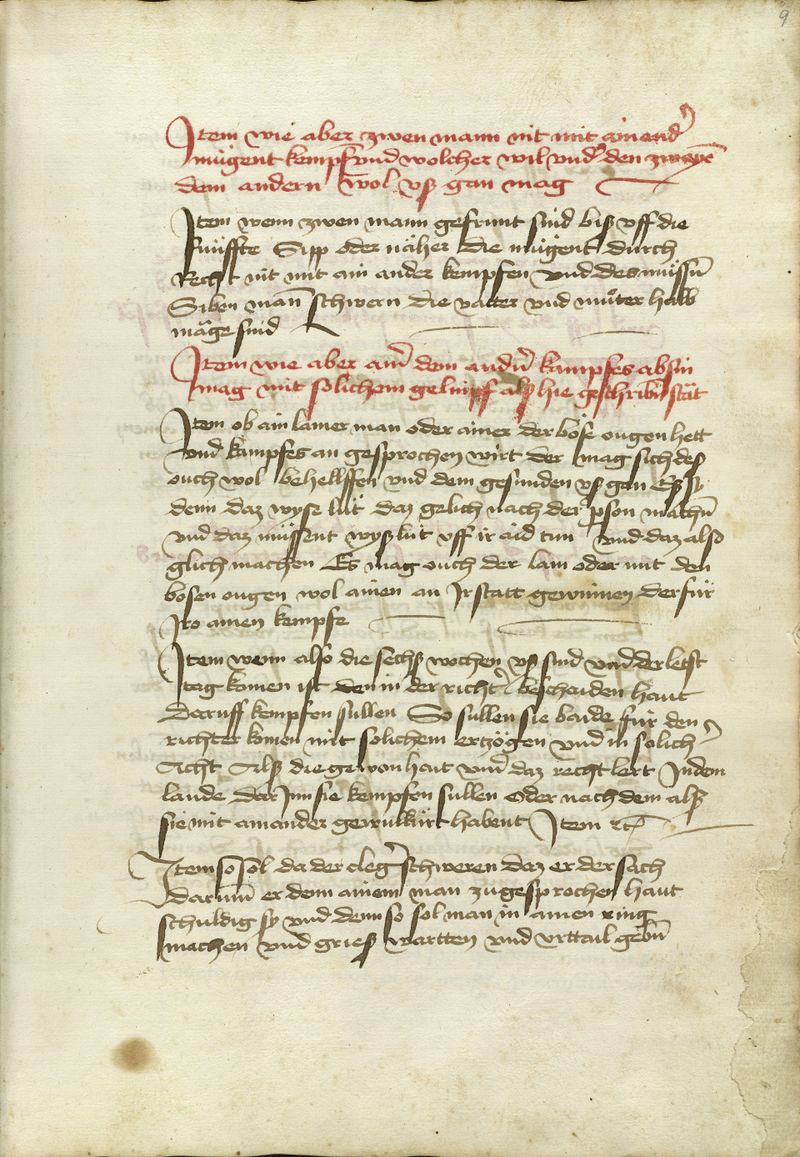 9
Item wie aber zwen mann nit mit ainend'
mügent kempf vnd wolcher wil vnd' den zwayē
dem andern wol vß gan mag
Item wenn zwen mann gefrunt sind biß vff die
fünffte Sipp oder näher die mügent durch
Recht nit mit ain ander kempfen vnd des müssū
Siben man̄ schwern die vatter vnd můter halb
mäge sind
Item wie aber ain' dem andn̄ kampfes absin
mag mit solichem gelimpf alß hie geschribn̄ stät
Item ob ain lamer man oder ainer der böse ougen hett
vnd kampfes an gesprochen wirt der mag sich des
ouch wol behellffen vnd dem gesunden vß gan Eß sy
denn daz wyse lüt daz gelich nach der pson machn̄
vnd daz müssent wyß lüt vff ir aid tun vnd daz also
glich machen Es mag ouch der lam oder mit den
bosen ougen wol ainen an Ir statt gewinnen der für
Iro ainen kempfe
Item wenn also die sechs wochen vß sind vnd der letst
tag komen ist den in der richt' bescheiden haut
Daruff kempfen süllen So sullen sie baide für den
richter komen mit solichem erzögen vnd in solich'
Acht Alß die gewonhait vnd daz recht lert In dem
lande dar Inn sie kempfen sullen oder nach dem alß
sie mit ainander gewulkürt habent Item etc̄
Item so sol da der cleg' schweren daz er der sach
darum̄ er dem ainem man zu gesprochen haut
schuldig sy vnd denn so sol man in ainen ring
machen vnd grieß wartten vnd vrttail gebn̄